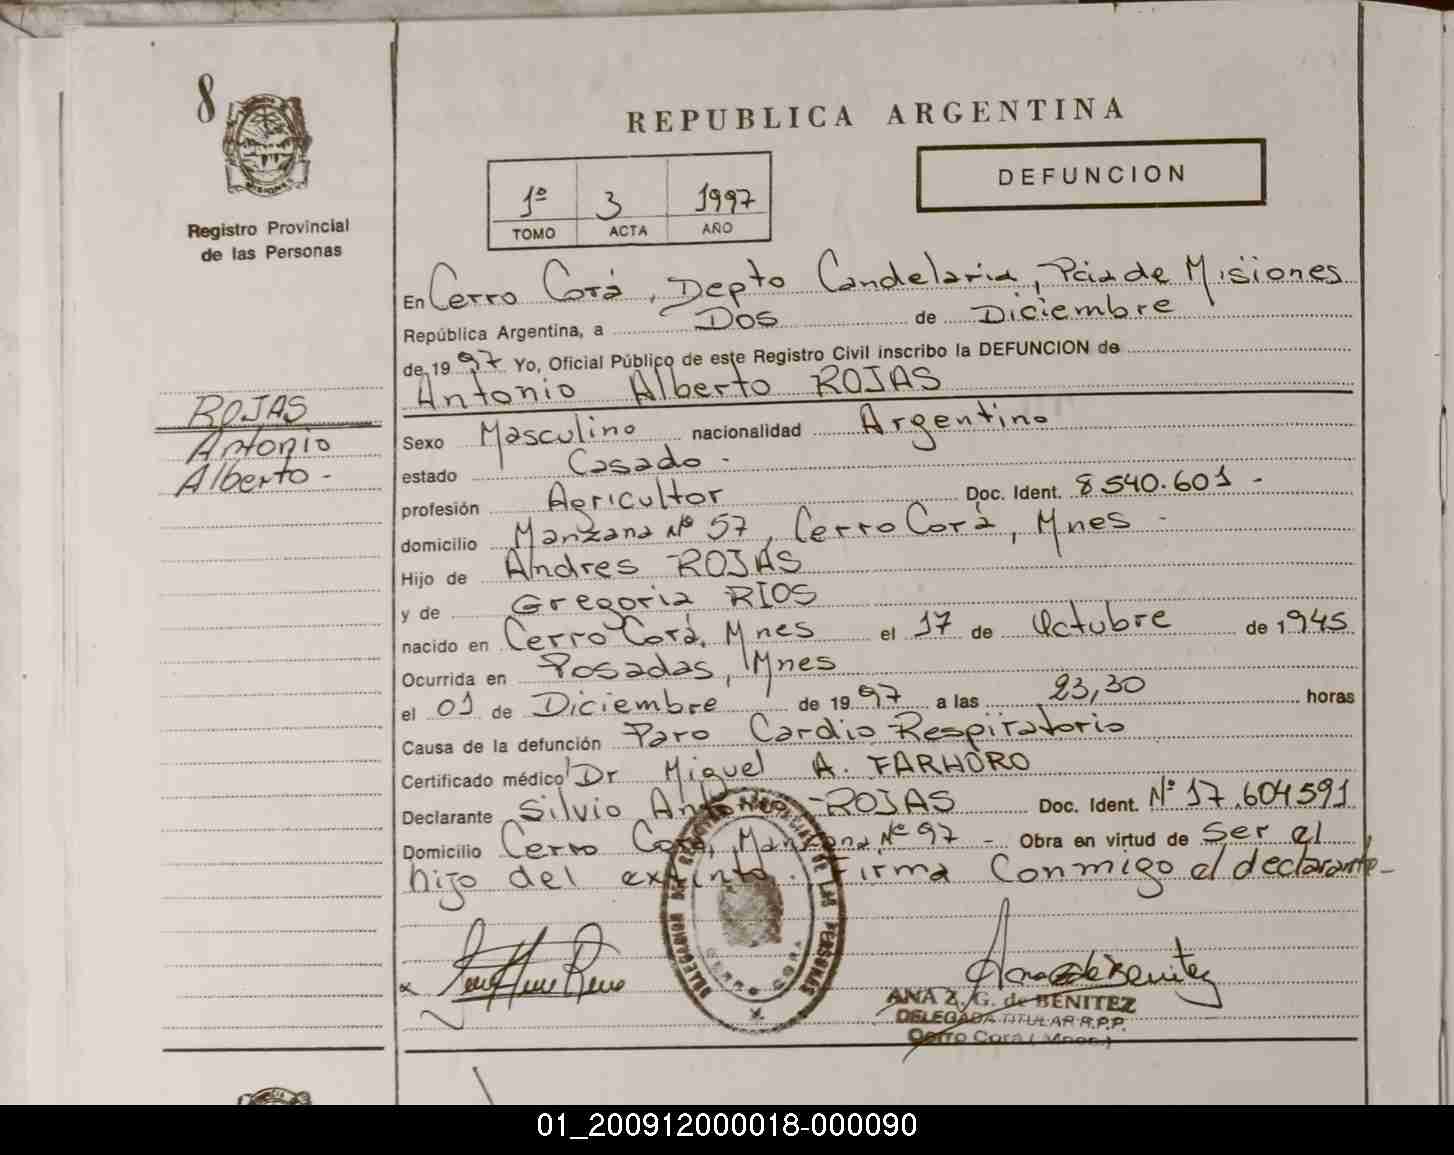 8
MISIONES
Registro Provincial
de las Personas
REPUBLICA ARGENTINA
1º 3 1997
TOMO ACTA AÑO
DEFUNCION
ROJAS
Antonio
Alberto -
En Cerro Corá, Depto Candelaria, Pcia de Misiones
República Argentina, a Dos de Diciembre
de 1997 Yo, Oficial Público de este Registro Civil inscribo la DEFUNCION de
Antonio Alberto ROJAS
Sexo Masculino nacionalidad Argentino
estado Casado -
profesión Agricultor Doc. Ident. 8.540.601 -
domicilio Manzana Nº 57, Cerro Corá, Mnes -
Hijo de Andres ROJAS
y de Gregoria RIOS
nacido en Cerro Corá, Mnes el 17 de Octubre de 1945
Ocurrida en Posadas, Mnes
el 01 de Diciembre de 1997 a las 23,30 horas
Causa de la defunción Paro Cardio Respiratorio
Certificado médico Dr Miguel A. FARHORO
Declarante Silvio ROJAS Doc. Ident. Nº 17.604591
Domicilio Cerro Corá, Manzana Nº 97 - Obra en virtud de Ser el
hijo del extinto. Firma Conmigo el declarante -
DELEGACION DEL REGISTRO PROVINCIAL DE LAS PERSONAS
CERRO CORA
Ana de Benitez
ANA Z. G. de BENITEZ
DELEGADA TITULAR R.P.P.
Cerro Corá (Mnes.)
01_200912000018-000090